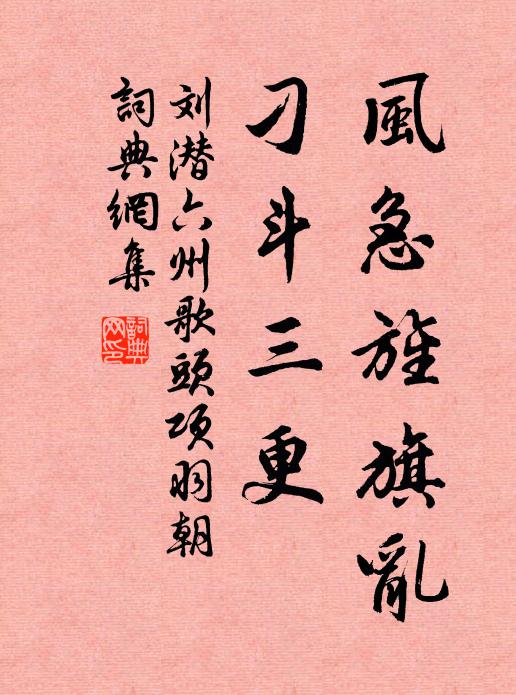 風急旌旗亂
刁斗三更
刘潜六州歌頭項羽朝
詞典網集
詞典
网印